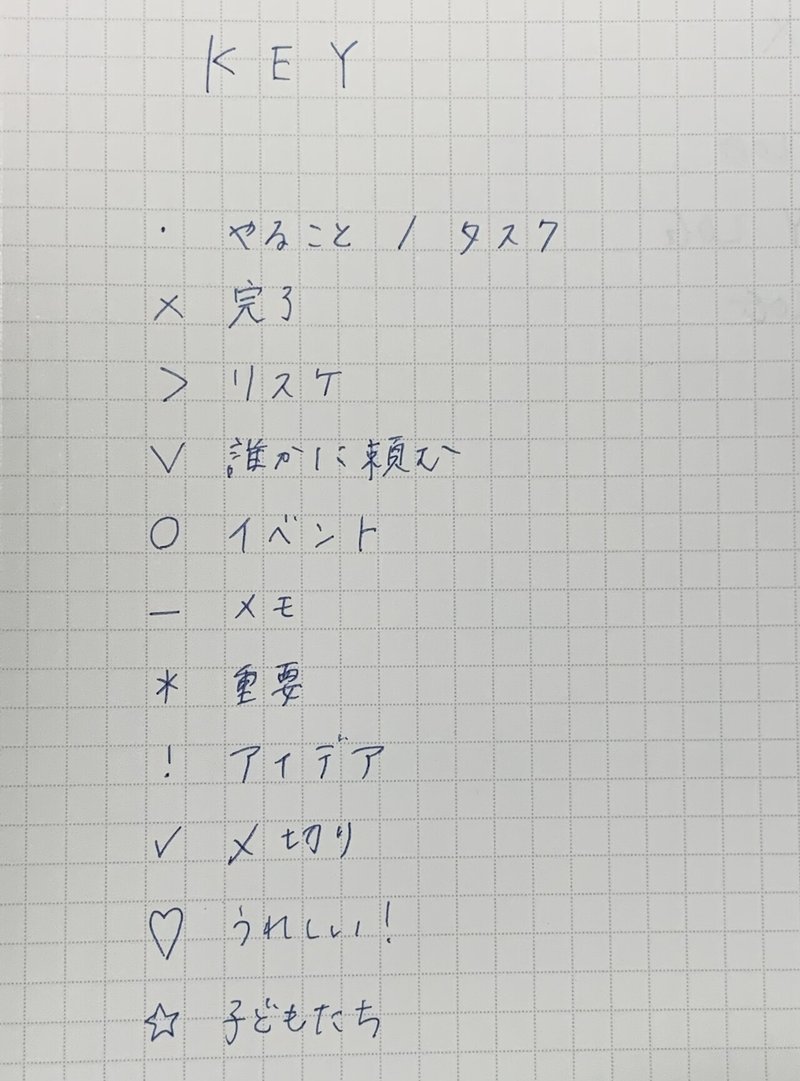 KEY
・ やること / タスク
× 完了
> リスケ
∨ 誰かに頼む
○ イベント
— メモ
* 重要
! アイデア
✓ 〆切り
♡ うれしい!
☆ 子どもたち